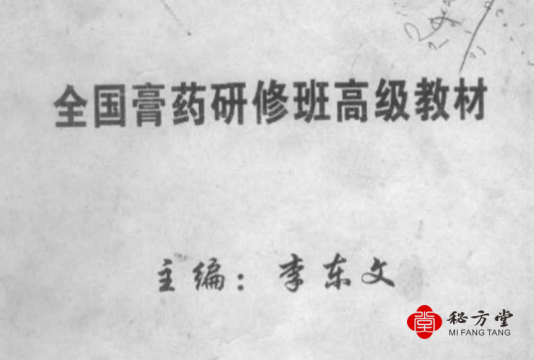 全国膏药研修班高级教材
主编：李东文
秘方堂
MI FANG TANG